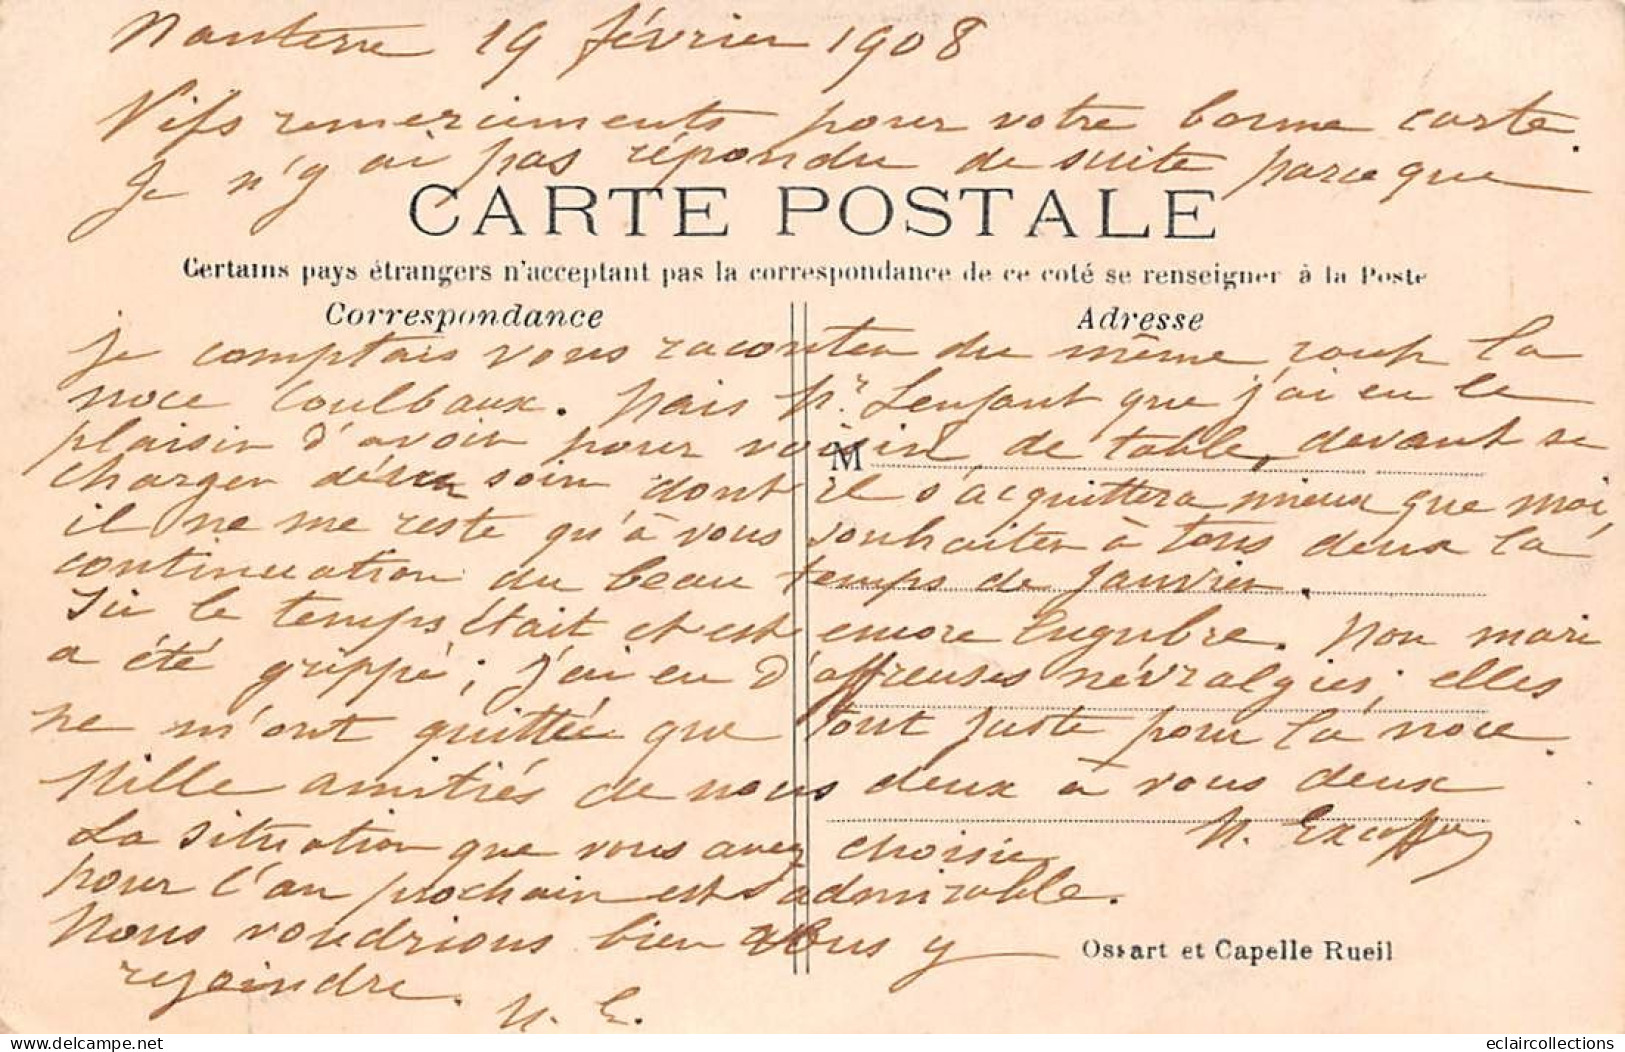 Nanterre 19 février 1908
Vifs remerciements pour votre bonne carte.
Je n'y ai pas répondu de suite parce que
CARTE POSTALE
Certains pays étrangers n'acceptant pas la correspondance de ce coté se renseigner à la Poste
Correspondance Adresse
je comptais vous raconter du même coup la
noce Coulbaux. Mais Mr. Lenfant que j'ai eu le
plaisir d'avoir pour voisin de table, devant se
M
charger de ce soin dont il s'acquittera mieux que moi,
il ne me reste qu'à vous souhaiter à tous deux la
continuation du beau temps de janvier.
Ici le temps était et est encore lugubre. Mon mari
a été grippé; j'ai eu d'affreuses névralgies; elles
ne m'ont quittée que tout juste pour la noce.
Mille amitiés de nous deux à vous deux
M. Excoffier
La situation que vous avez choisie
pour l'an prochain est admirable.
Nous voudrions bien vous y
rejoindre. M. E.
Ossart et Capelle Rueil
eclaircollections